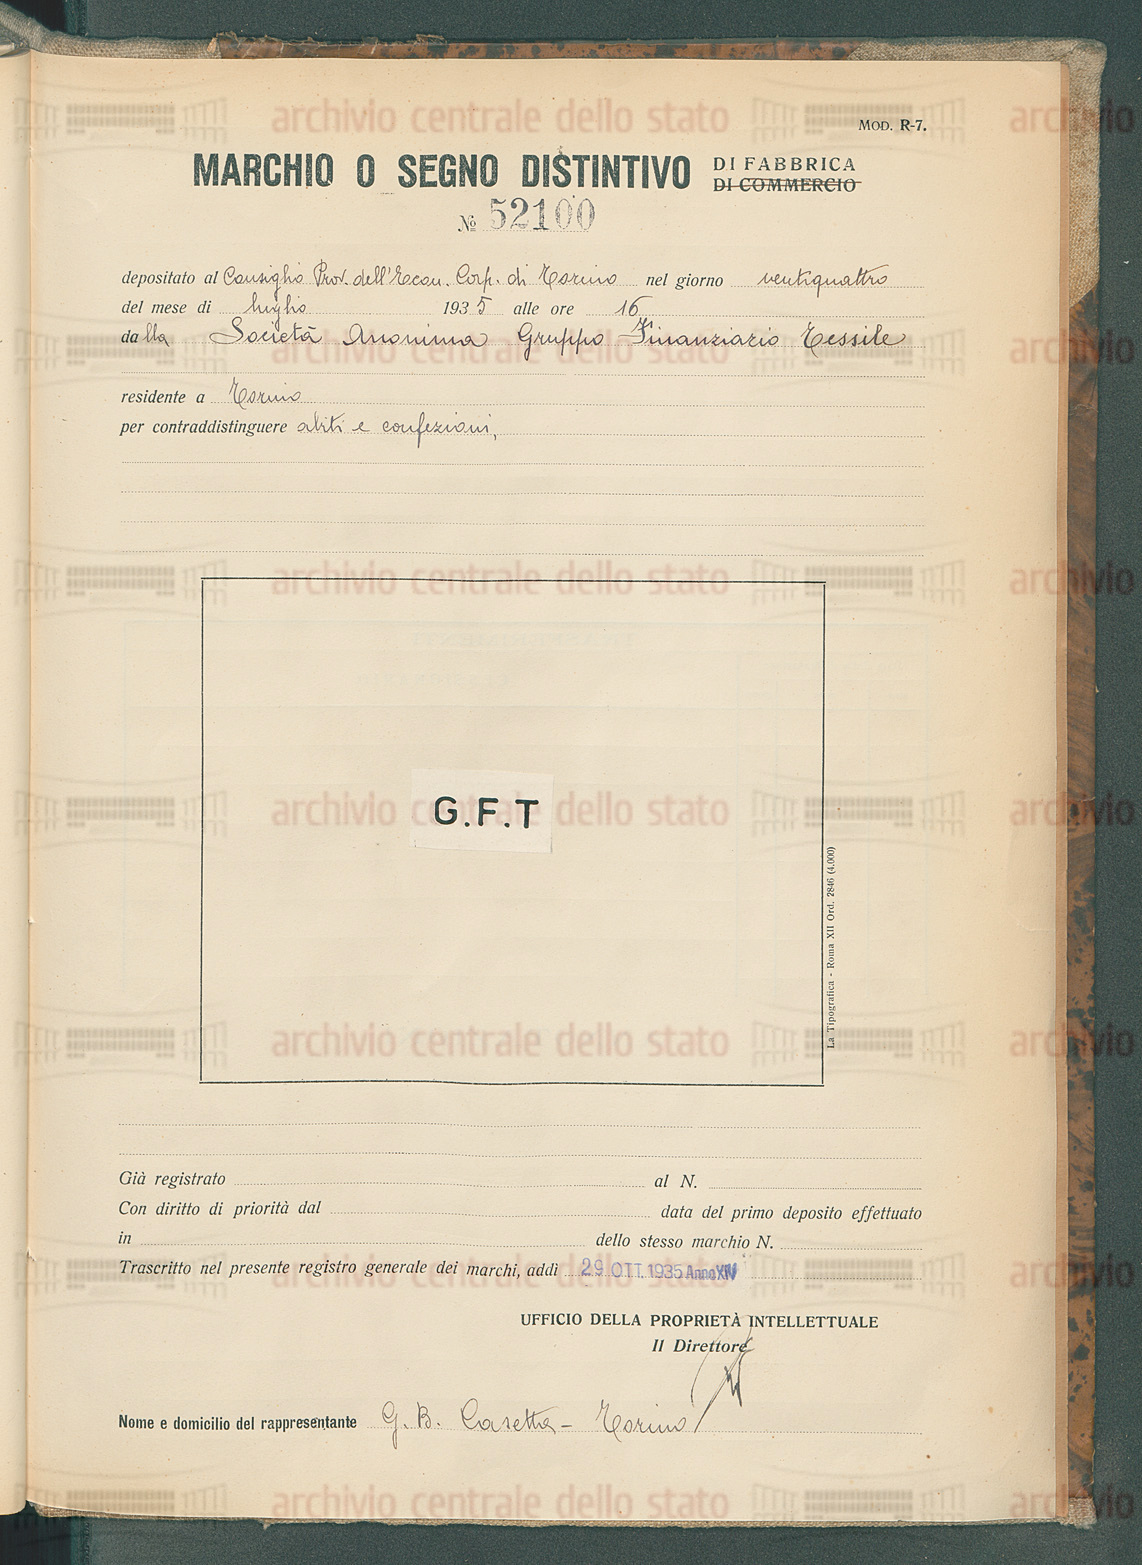 MOD. R-7.
MARCHIO O SEGNO DISTINTIVO DI FABBRICA
DI COMMERCIO
№ 52100
depositato al Consiglio Prov. dell'Econ. Corp. di Torino nel giorno ventiquattro
del mese di luglio 1935 alle ore 16
dalla Società Anonima Gruppo Finanziario Tessile
residente a Torino
per contraddistinguere abiti e confezioni,
G.F.T
La Tipografica - Roma XII Ord. 2846 (4.000)
Già registrato al N.
Con diritto di priorità dal data del primo deposito effettuato
in dello stesso marchio N.
Trascritto nel presente registro generale dei marchi, addì 29 OTT. 1935 Anno XIV
UFFICIO DELLA PROPRIETÀ INTELLETTUALE
Il Direttore
Nome e domicilio del rappresentante G. B. Casetta - Torino
archivio centrale dello stato